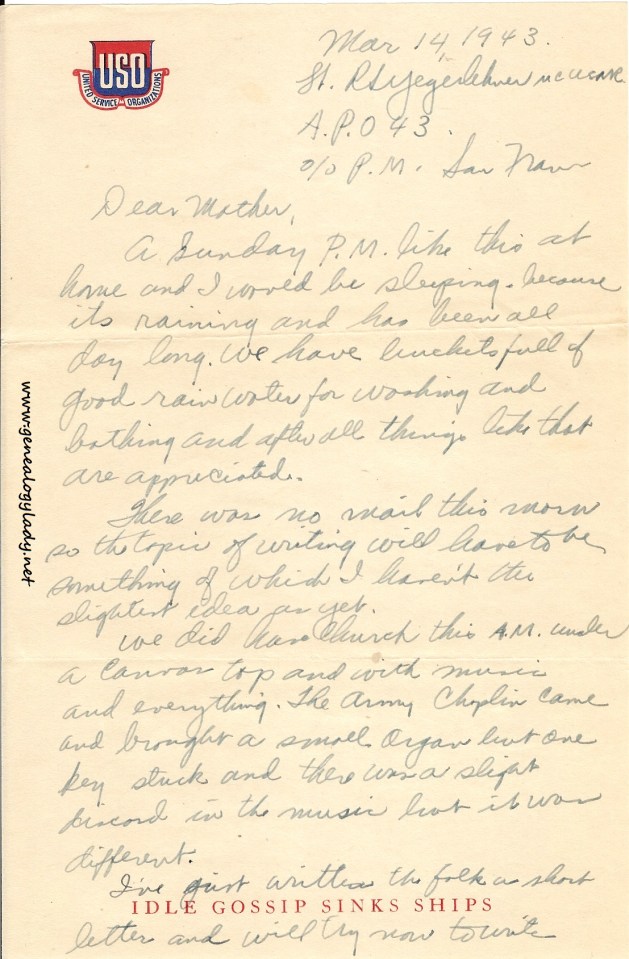 USO
UNITED SERVICE ORGANIZATIONS
Mar 14, 1943.
Lt. RSYegerlehner MC
A.P.O 43.
c/o P.M. San Fran
Dear Mother,
A Sunday P.M. like this at
home and I would be sleeping. because
its raining and has been all
day long. We have bucketsfull of
good rain water for washing and
bathing and after all things like that
are appreciated.
There was no mail this morn
so the topic of writing will have to be
something of which I haven't the
slightest idea as yet.
We did have Church this A.M. under
a canvas top and with music
and everything. The Army Chaplin came
and brought a small Organ but one
key stuck and there was a slight
discord in the music but it was
different.
I've just written the folk a short
IDLE GOSSIP SINKS SHIPS
letter and will try now to write
www.genealogylady.net